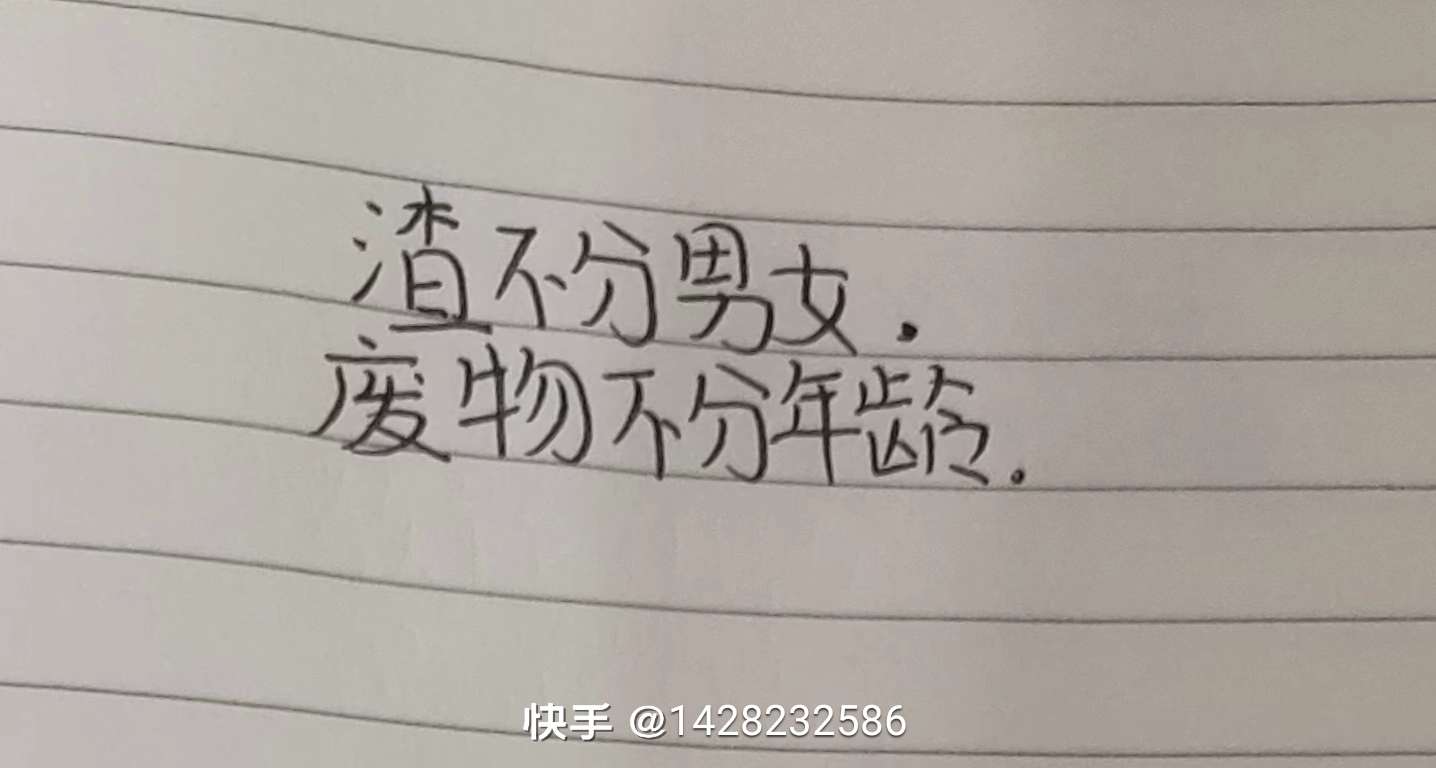 渣不分男女.
废物不分年龄.
快手 @1428232586